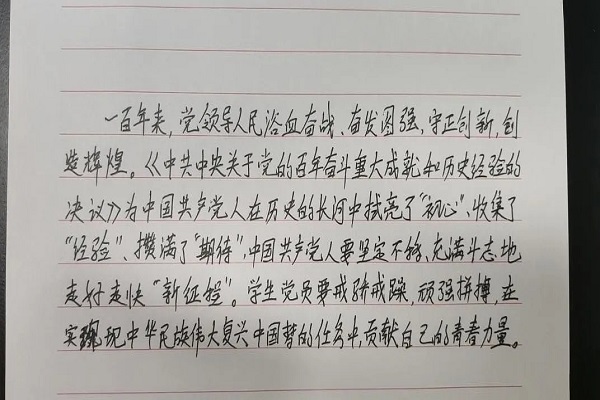 一百年来,党领导人民浴血奋战、奋发图强,守正创新,创
造辉煌。《中共中央关于党的百年奋斗重大成就和历史经验的
决议》为中国共产党人在历史的长河中拭亮了“初心”、收集了
“经验”、攒满了“期待”,中国共产党人要坚定不移、充满斗志地
走好走快“新征程”。学生党员要戒骄戒躁,顽强拼搏,在
实现中华民族伟大复兴中国梦的任务中,贡献自己的青春力量。